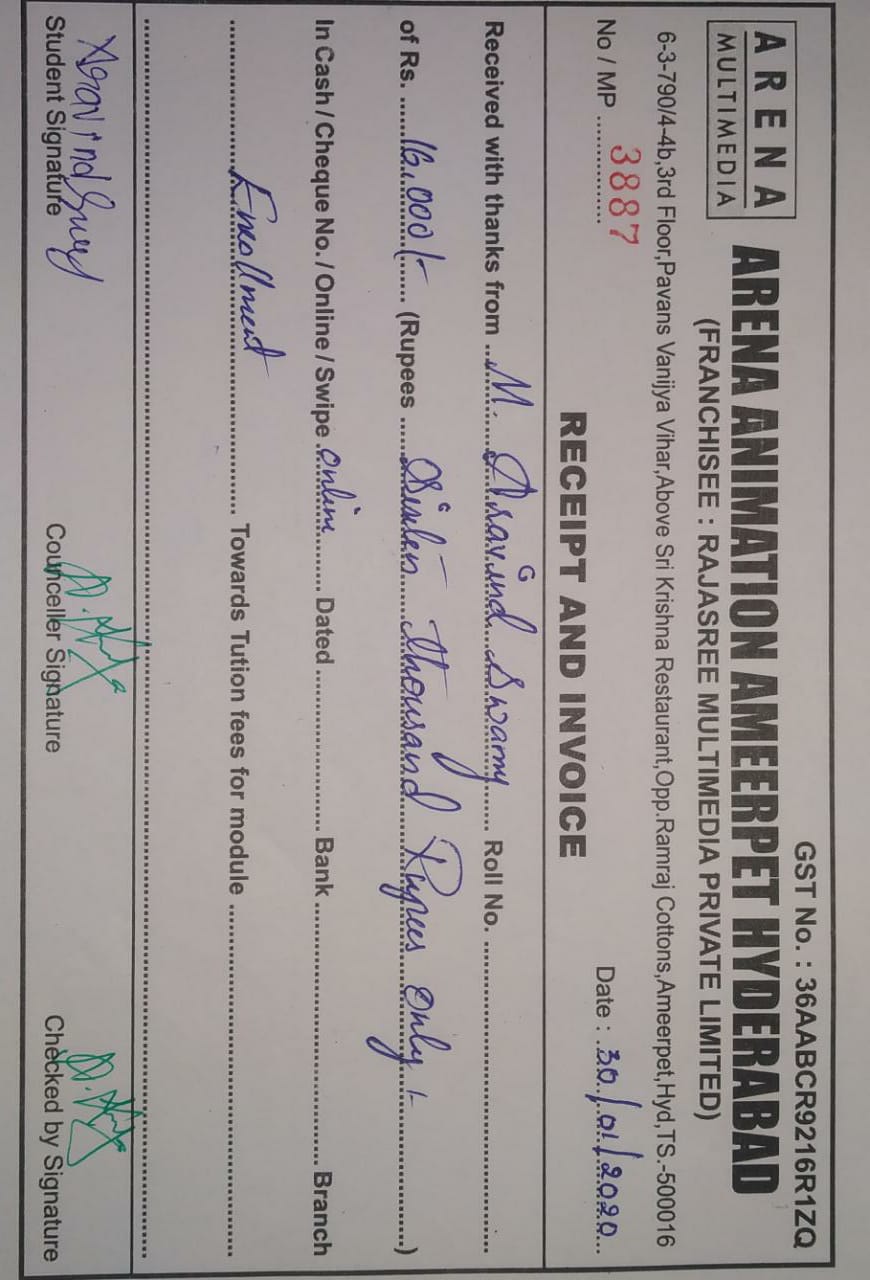 GST No. : 36AABCR9216R1ZQ
ARENA
MULTIMEDIA
ARENA ANIMATION AMEERPET HYDERABAD
(FRANCHISEE : RAJASREE MULTIMEDIA PRIVATE LIMITED)
6-3-790/4-4b,3rd Floor,Pavans Vanijya Vihar,Above Sri Krishna Restaurant,Opp.Ramraj Cottons,Ameerpet,Hyd,TS.-500016
No / MP 3887 Date : 30/01/2020
RECEIPT AND INVOICE
Received with thanks from M. Aravind Swamy Roll No.
of Rs. 16,000/- (Rupees Sixteen thousand Rupees Only /-)
In Cash / Cheque No. / Online / Swipe online Dated Bank Branch
Enrollment Towards Tution fees for module
Student Signature Counceller Signature Checked by Signature